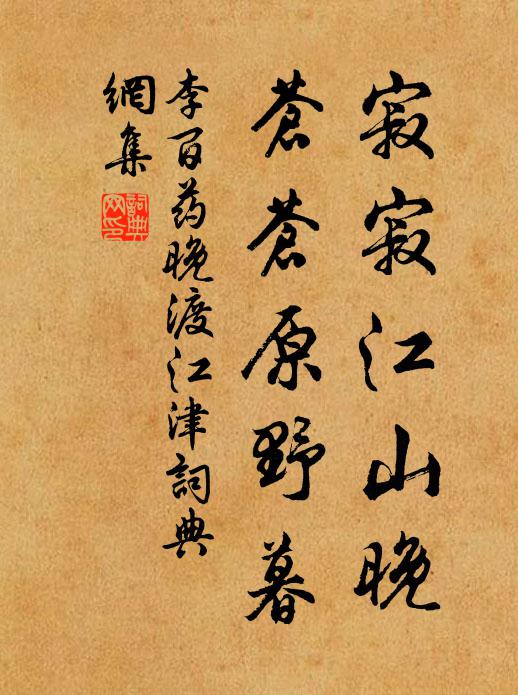 寂寂江山晚
蒼蒼原野暮
李百药晚渡江津詞典
網集
詞典
网印